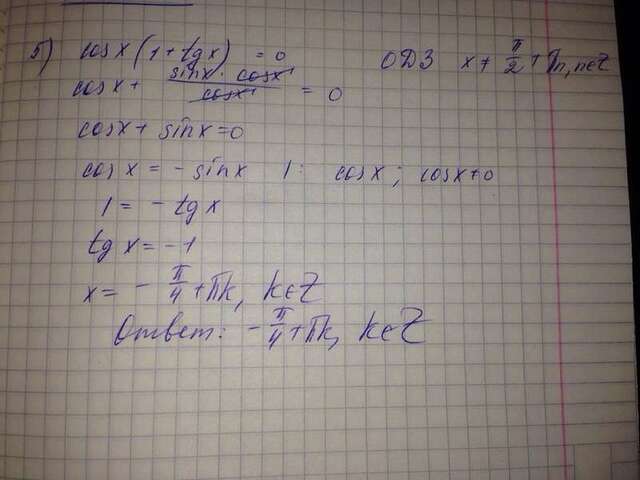 5) cosx(1+tgx) = 0   ОДЗ x ≠ π/2 + πn, n∈Z
cosx + sinx · cosx/cosx = 0
cosx + sinx = 0
cosx = - sinx | : cosx ; cosx ≠ 0
1 = - tgx
tgx = -1
x = - π/4 + πk, k∈Z
Ответ: - π/4 + πk, k∈Z